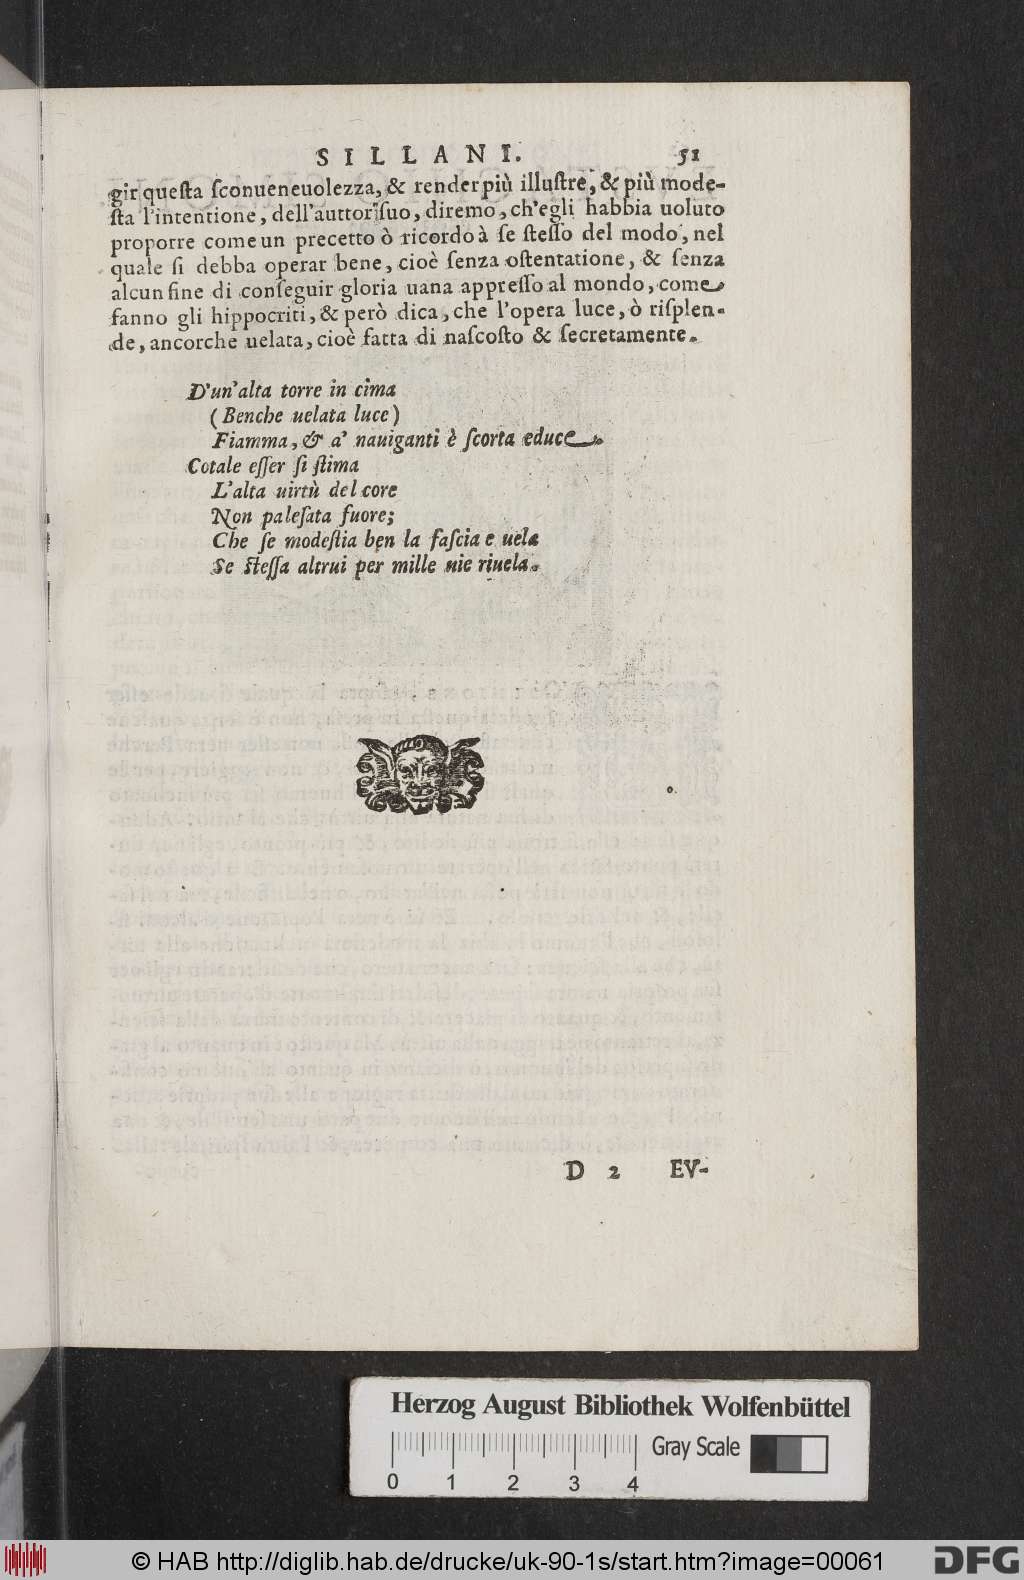 SILLANI. 51
gir questa sconueneuolezza, & render più illustre, & più mode-
sta l'intentione, dell'auttor suo, diremo, ch'egli habbia uoluto
proporre come un precetto ò ricordo à se stesso del modo, nel
quale si debba operar bene, cioè senza ostentatione, & senza
alcun fine di conseguir gloria uana appresso al mondo, come
fanno gli hippocriti, & però dica, che l'opera luce, ò risplen-
de, ancorche uelata, cioè fatta di nascosto & secretamente.
D'un'alta torre in cima
(Benche uelata luce)
Fiamma, & a' nauiganti è scorta e duce.
Cotale esser si stima
L'alta uirtù del core
Non palesata fuore;
Che se modestia ben la fascia e uela
Se stessa altrui per mille uie riuela.
D 2 EV-
Herzog August Bibliothek Wolfenbüttel
Gray Scale
0 1 2 3 4
© HAB http://diglib.hab.de/drucke/uk-90-1s/start.htm?image=00061
DFG